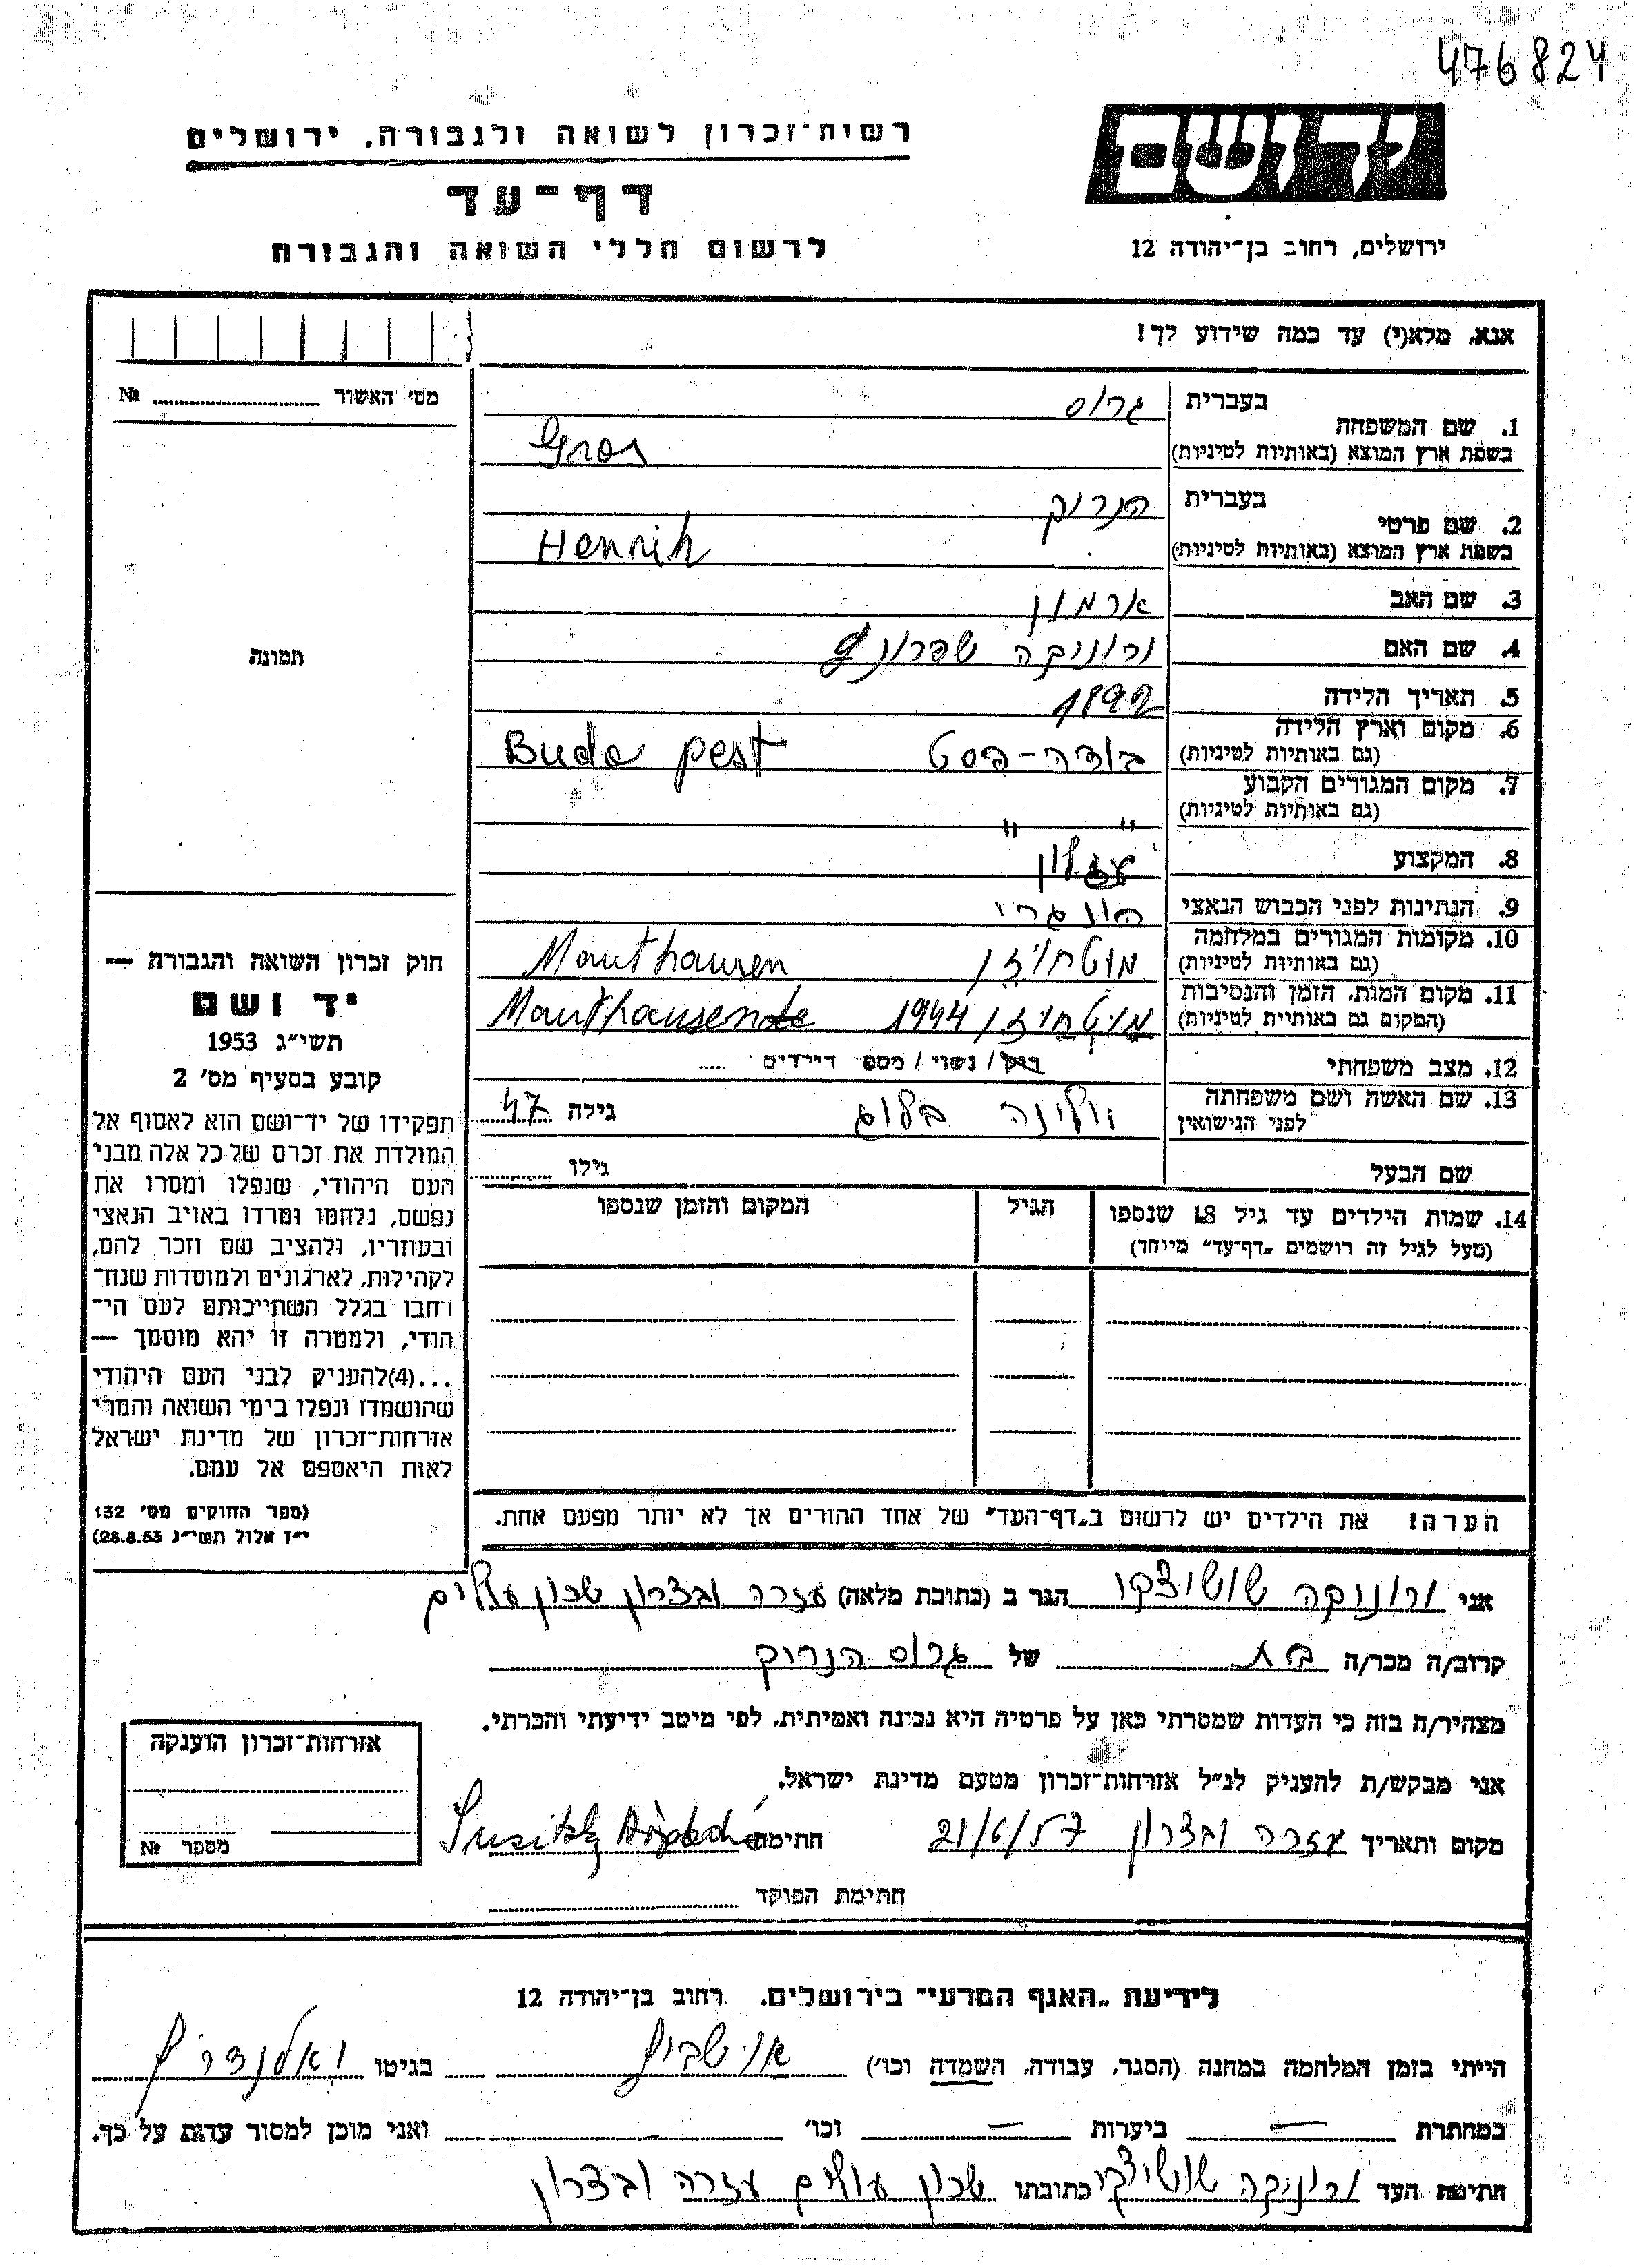 476824
רשות־זכרון לשואה ולגבורה, ירושלים
יד ושם
דף־עד
לרשום חללי השואה והגבורה
ירושלים, רחוב בן־יהודה 12
אנא, מלא(י) עד כמה שידוע לך!
מס׳ האשור № 
1. שם המשפחה בעברית גרוס
בשפת ארץ המוצא (באותיות לטיניות) Gros
2. שם פרטי בעברית הנריק
בשפת ארץ המוצא (באותיות לטיניות) Henrih
3. שם האב ארמון
4. שם האם ורוניקה
5. תאריך הלידה 1892
6. מקום וארץ הלידה (גם באותיות לטיניות) בודה-פסט Buda pest
7. מקום המגורים הקבוע (גם באותיות לטיניות) " "
8. המקצוע
9. הנתינות לפני הכבוש הנאצי הונגרי
10. מקומות המגורים במלחמה (גם באותיות לטיניות) מוטחוזן Mauthausen
11. מקום המות, הזמן והנסיבות (המקום גם באותיות לטיניות) מוטחוזן 1944 Mauthausen
12. מצב משפחתי רווק / נשוי / מספ הילדים
13. שם האשה ושם משפחתה לפני הנישואין בלוג גילה 47
שם הבעל גילו
14. שמות הילדים עד גיל 18 שנספו הגיל המקום והזמן שנספו
(מעל לגיל זה רושמים „דף־עד" מיוחד)
הערה! את הילדים יש לרשום ב„דף־העד" של אחד ההורים אך לא יותר מפעם אחת.
תמונה
חוק זכרון השואה והגבורה —
יד ושם
תשי״ג 1953
קובע בסעיף מס׳ 2
תפקידו של יד־ושם הוא לאסוף אל
המולדת את זכרם של כל אלה מבני
העם היהודי, שנפלו ומסרו את
נפשם, נלחמו ומרדו באויב הנאצי
ובעוזריו, ולהציב שם וזכר להם,
לקהילות, לארגונים ולמוסדות שנח־
רבו בגלל השתייכותם לעם הי־
הודי, ולמטרה זו יהא מוסמך —
...(4)להעניק לבני העם היהודי
שהושמדו ונפלו בימי השואה והמרי
אזרחות־זכרון של מדינת ישראל
לאות היאספם אל עמם.
(ספר החוקים מס׳ 132
י״ז אלול תשי״ג 28.8.53)
אני ורוניקה שושיצקי הגר ב (כתובת מלאה) עזרה ובצרון שכון עולים
קרוב/ה מכר/ה בת של גרוס הנריק
מצהיר/ה בזה כי העדות שמסרתי כאן על פרטיה היא נכונה ואמיתית, לפי מיטב ידיעתי והכרתי.
אני מבקש/ת להעניק לנ״ל אזרחות־זכרון מטעם מדינת ישראל.
מקום ותאריך עזרה ובצרון 21/6/57 חתימה
חתימת הפוקד
אזרחות־זכרון הוענקה
מספר №
לידיעת „האגף המדעי" בירושלים, רחוב בן־יהודה 12
הייתי בזמן המלחמה במחנה (הסגר, עבודה, השמדה וכו׳) בגיטו
במחתרת — ביערות — וכו׳ — ואני מוכן למסור עדות על כך.
חתימת העד ורוניקה שושיצקי כתובתו שכון עולים עזרה ובצרון